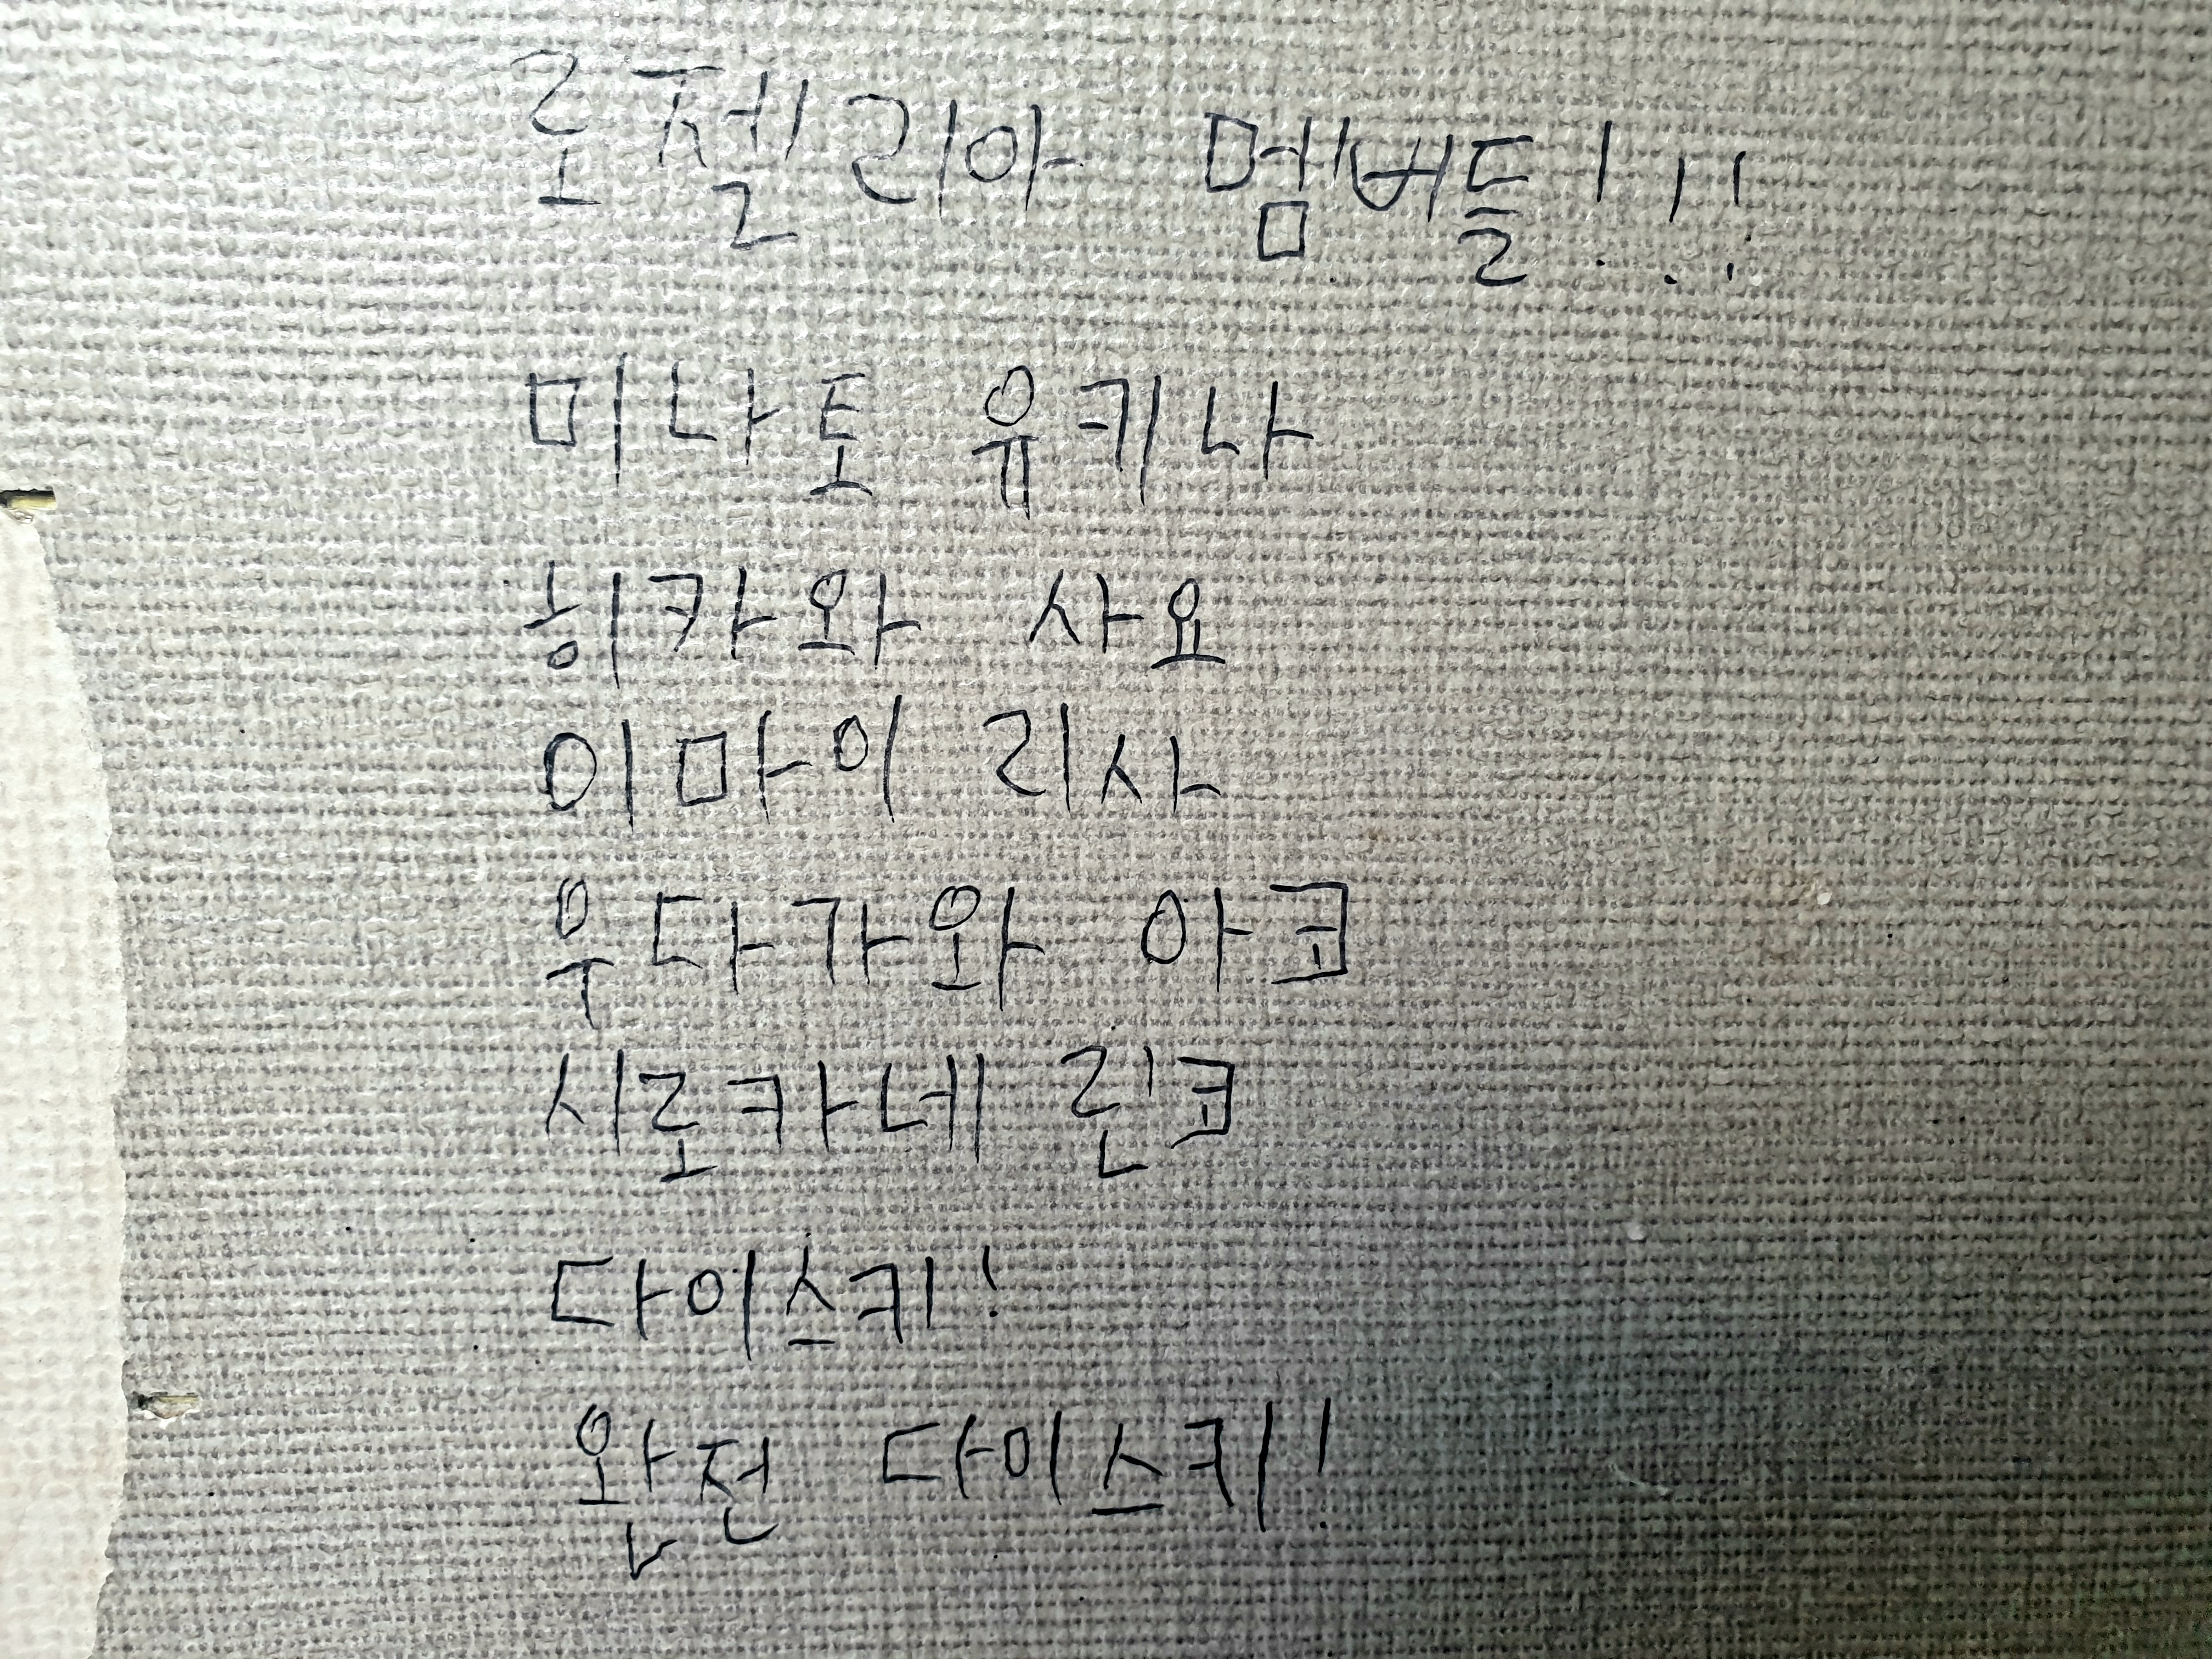 로젤리아 멤버들!!!
미나토 유키나
히카와 사요
이마이 리사
우다가와 아코
시로카네 린코
다이스키!
완전 다이스키!